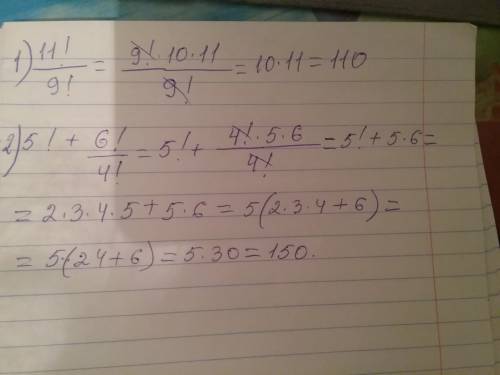 1) 11!/9! = 9!·10·11/9! = 10·11 = 110
2) 5! + 6!/4! = 5! + 4!·5·6/4! = 5! + 5·6 =
= 2·3·4·5 + 5·6 = 5(2·3·4 + 6) =
= 5·(24 + 6) = 5·30 = 150.